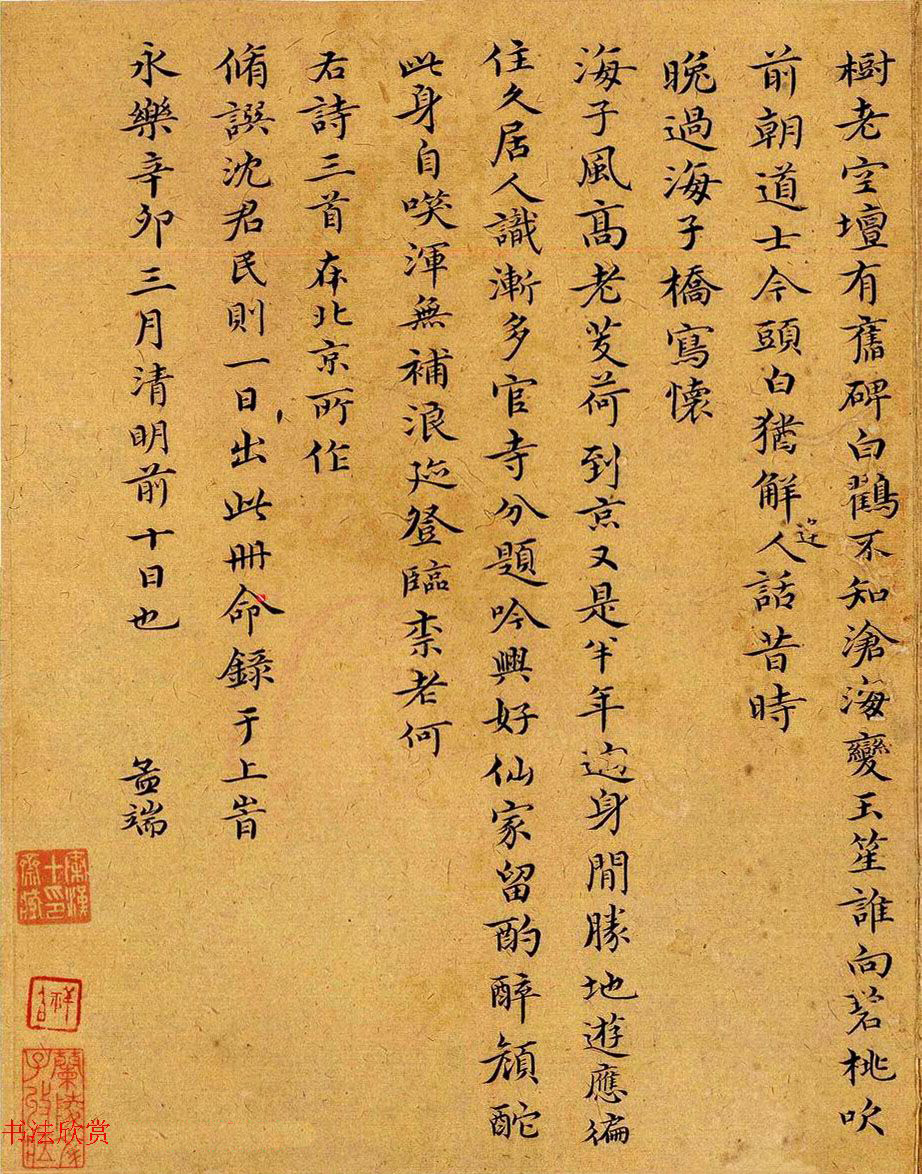 樹老空壇有舊碑白鸛不知滄海變玉笙誰向碧桃吹
前朝道士今頭白猶解人話昔時
逆
晚過海子橋寫懷
海子風高老芰荷到京又是半年過身閒勝地遊應徧
住久居人識漸多官寺分題吟興好仙家留酌醉顏酡
此身自唉渾無補浪跡登臨柰老何
右詩三首在北京所作
脩譔沈君民則一日出此冊命錄于上旹
永樂辛卯三月清明前十日也
孟端
秦漢十印齋藏
祥
书法欣赏